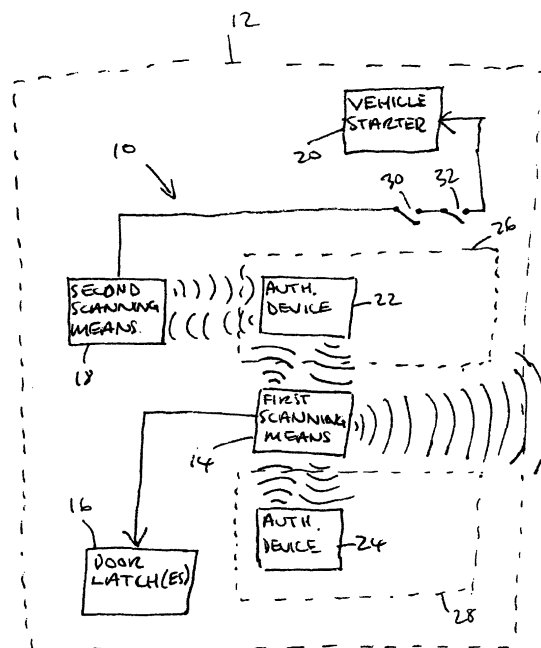 12
VEHICLE
STARTER
20
10
30
32
26
SECOND
SCANNING
MEANS.
18
AUTH.
DEVICE
22
FIRST
SCANNING
MEANS
14
16
DOOR
LATCH(ES)
AUTH.
DEVICE
24
28